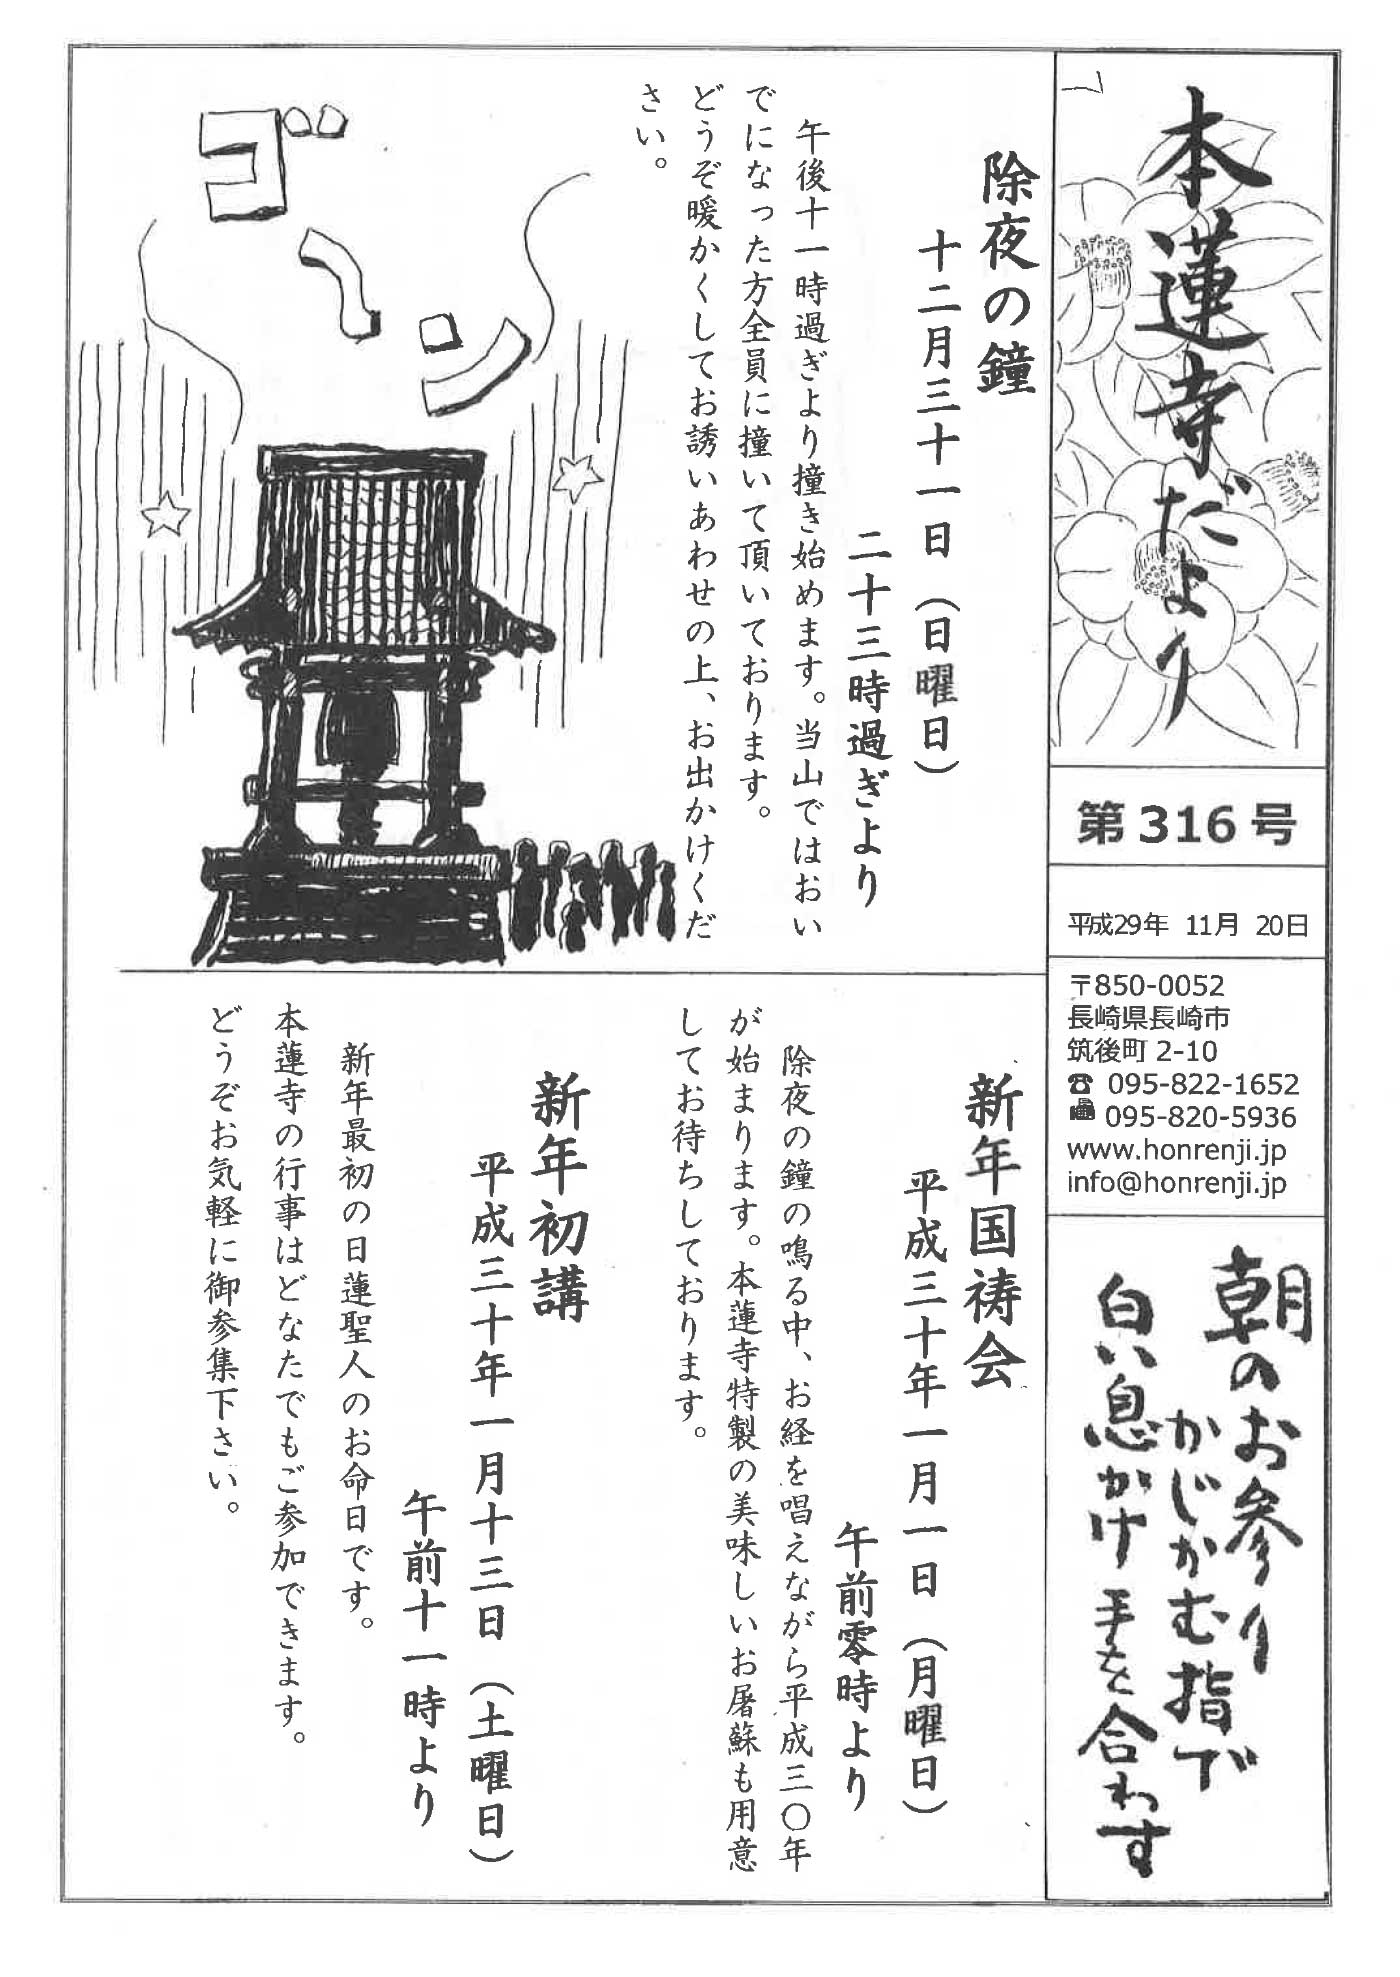 本蓮寺だより
第316号
平成29年 11月 20日
〒850-0052
長崎県長崎市
筑後町 2-10
☎ 095-822-1652
095-820-5936
www.honrenji.jp
info@honrenji.jp
朝のお参り
かじかむ指で
白い息かけ 手を合わす
除夜の鐘
十二月三十一日（日曜日）
二十三時過ぎより
午後十一時過ぎより撞き始めます。当山ではおい
でになった方全員に撞いて頂いております。
どうぞ暖かくしてお誘いあわせの上、お出かけくだ
さい。
ゴーン
新年国祷会
平成三十年一月一日（月曜日）
午前零時より
除夜の鐘の鳴る中、お経を唱えながら平成三〇年
が始まります。本蓮寺特製の美味しいお屠蘇も用意
してお待ちしております。
新年初講
平成三十年一月十三日（土曜日）
午前十一時より
新年最初の日蓮聖人のお命日です。
本蓮寺の行事はどなたでもご参加できます。
どうぞお気軽に御参集下さい。